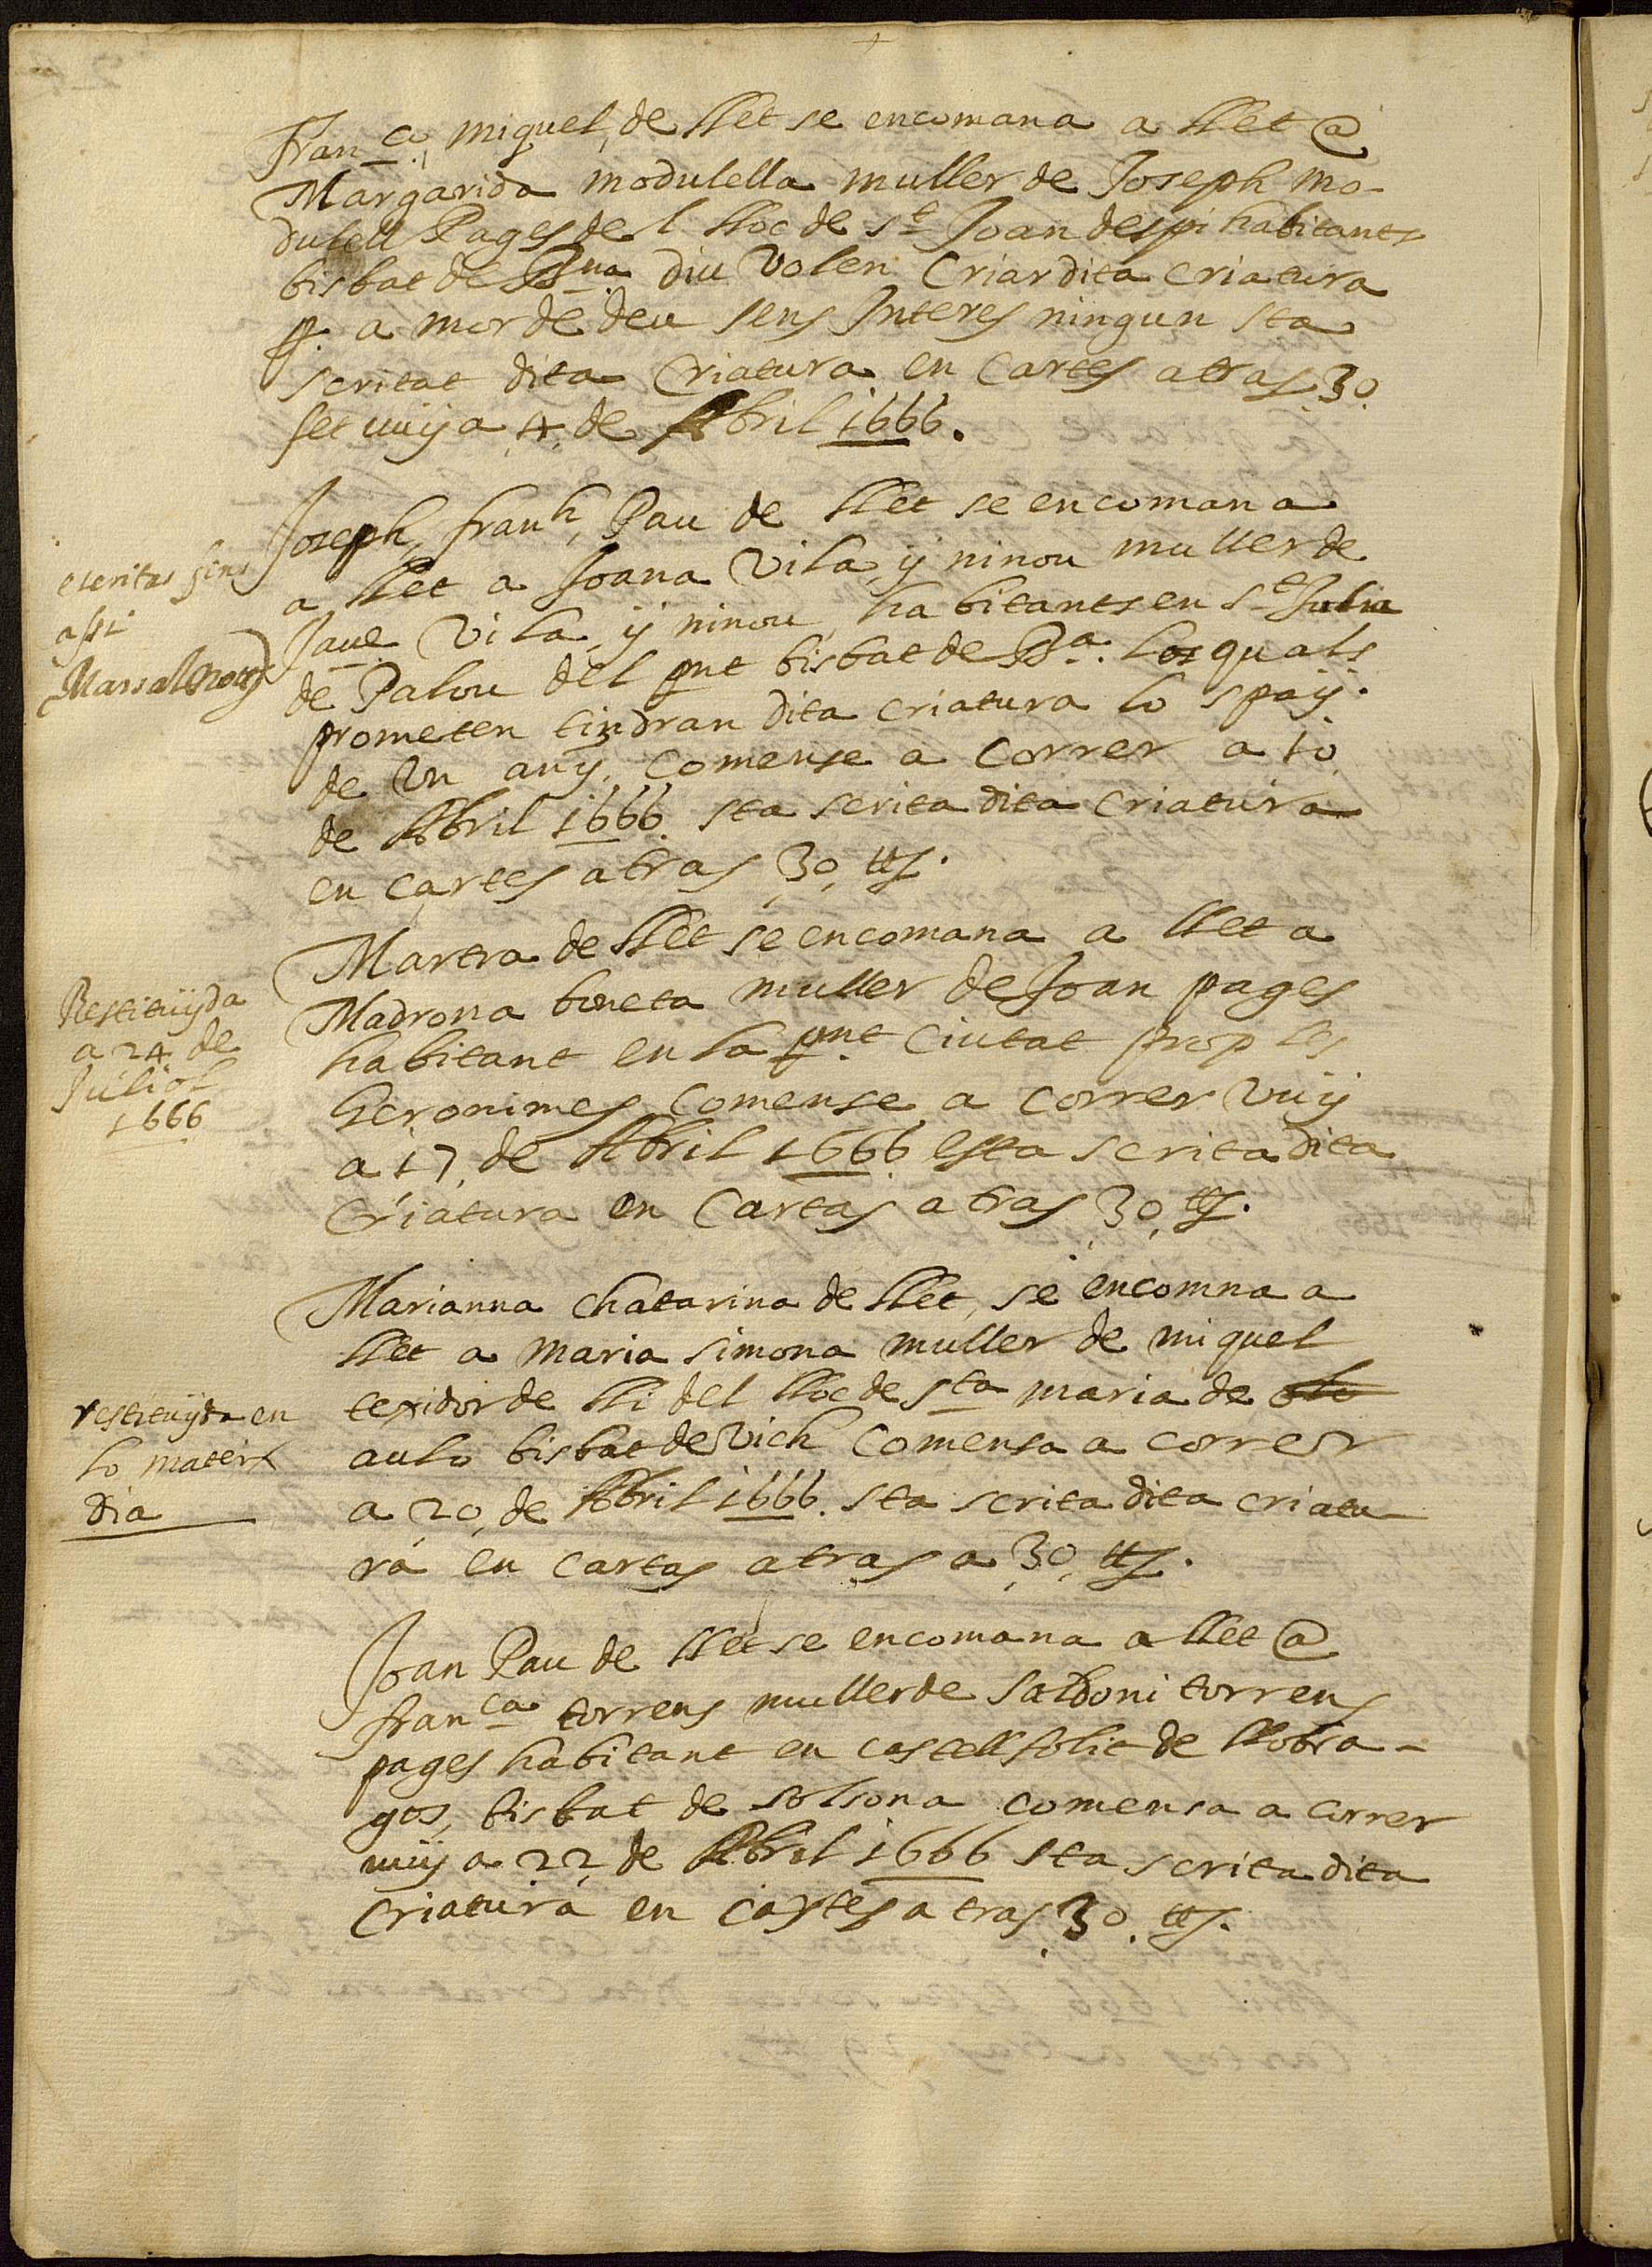 Fran.ca, miquel, de llet se encomana a llet @
Margarida modulella muller de Joseph mo-
dulell Pages del lloc de St Joan despi habitants
bisbat de Bna diu volen criar dita criatura
p. a mor de deu sens Interes ningun sta
scritat dita Criatura en Cartes atras 30
fet vuÿ a 4 de Abril 1666.
Joseph, franh, Pau de llet se encomana
escritas fins
assi
a llet a Joana Vila, ÿ ninou muller de
Jaue Vila, ÿ ninou, habitants en St Julia
de Palou del pnt bisbat de Ba. los quals
prometen tindran dita criatura lo spaÿ
de Vn anÿ, Comense a Correr a 10
de Abril 1666. sta scrita dita criatura
en cartes atras, 30, tts.
Martra de llet se encomana a llet a
Restituÿda
a 24 de
Juliol
1666
Madrona boneta muller de Joan pages
habitant en la pnt Ciutat prop les
Geronimes, Comense a correr vuÿ
a 17, de Abril 1666 esta scrita dita
Criatura en Cartas atras, 30, tts.
Marianna Chatarina de llet, se encomna a
llet a Maria Simona muller de miquel
restituÿda en
lo mateix
dia
texidor de lli del lloc de Sta maria de olo
aulo bisbat de Vich Comensa a correr
a 20, de Abril 1666. sta scrita dita criatu-
ra en cartas atras a, 30, tts.
Joan Pau de llet se encomana a llet @
franca torrens muller de Saldoni torrens
pages habitant en castellfolit de llobra-
gos, bisbat de solsona comensa a correr
vuÿ a 22, de Abril 1666 sta scrita dita
criatura en cartes atras, 30, tts.